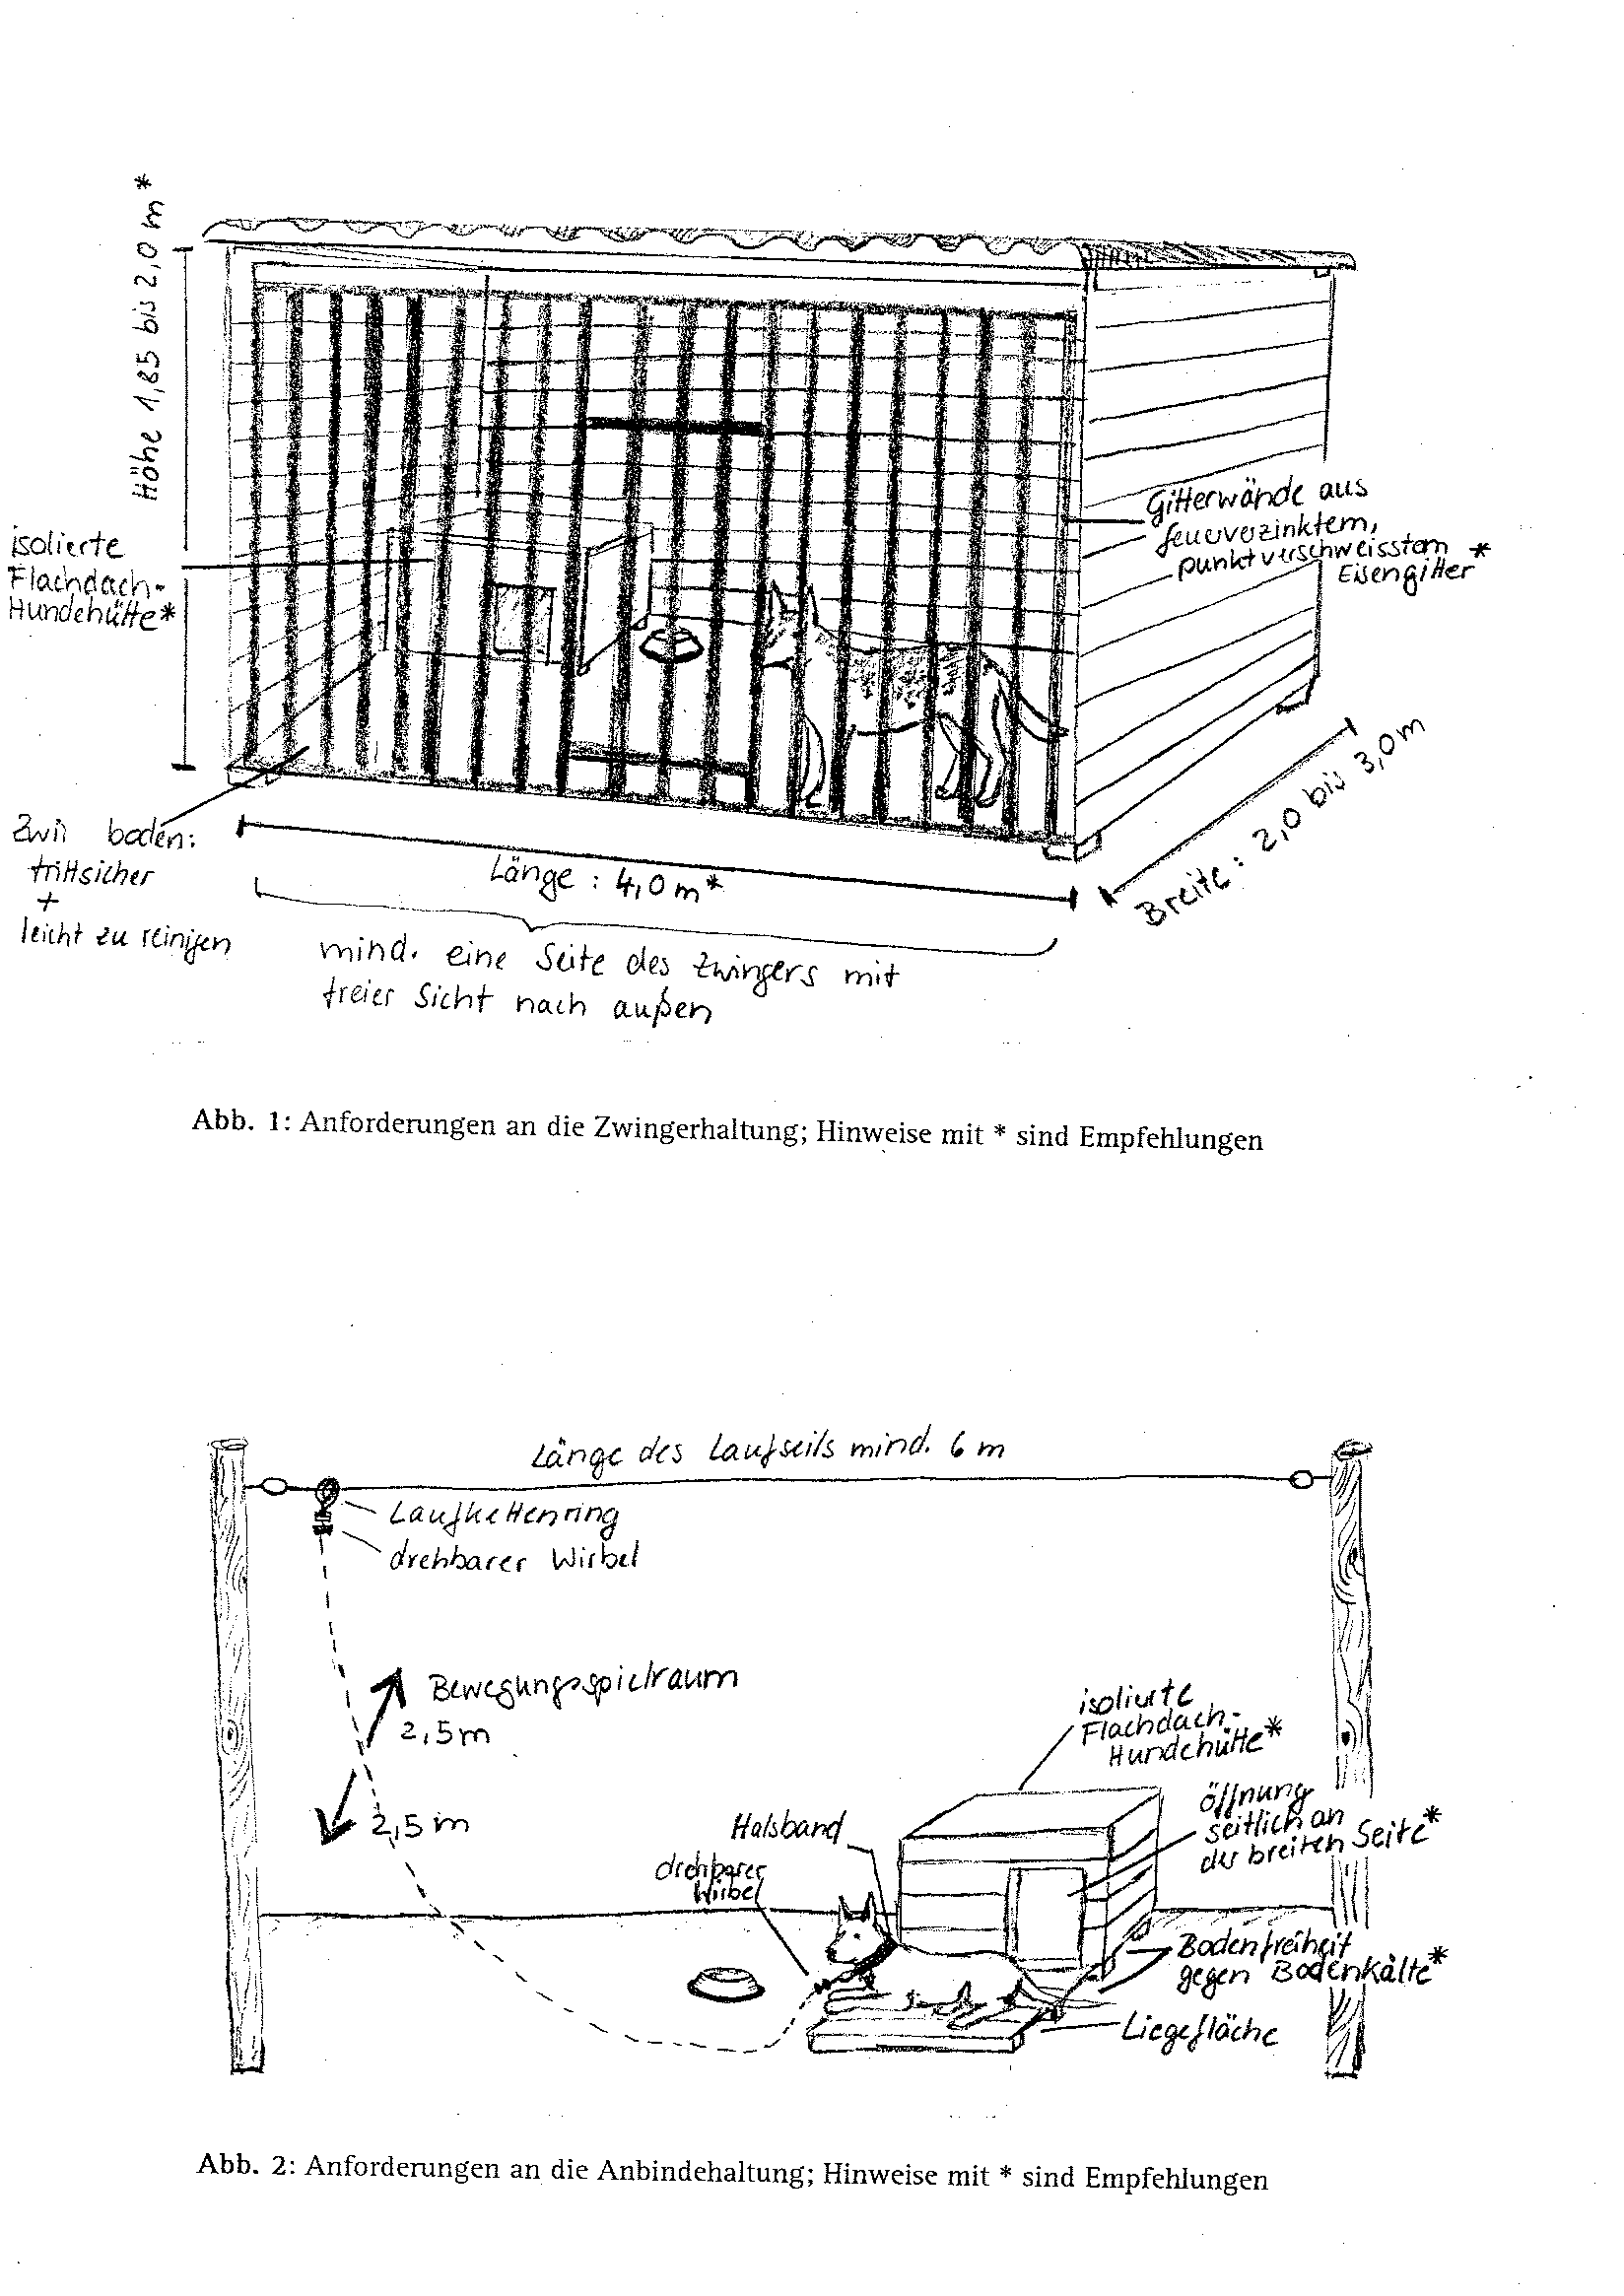 Höhe 1,85 bis 2,0 m *
isolierte
Flachdach-
Hundehütte*
Gitterwände aus
feuerverzinktem,
punktverschweisstem
Eisengitter *
boden:
trittsicher
+
leicht zu reinigen
Länge : 4,0 m*
Breite : 2,0 bis 3,0 m
mind. eine Seite des Zwingers mit
freier Sicht nach außen
Abb. 1: Anforderungen an die Zwingerhaltung; Hinweise mit * sind Empfehlungen
Länge des Laufseils mind. 6 m
Laufkettenring
drehbarer Wirbel
Bewegungsspielraum
2,5m
2,5 m
isolierte
Flachdach-
Hundehütte*
Halsband
drehbarer
Wirbel
öffnung
seitlich an
der breiten Seite*
Bodenfreiheit
gegen Bodenkälte*
Liegefläche
Abb. 2: Anforderungen an die Anbindehaltung; Hinweise mit * sind Empfehlungen